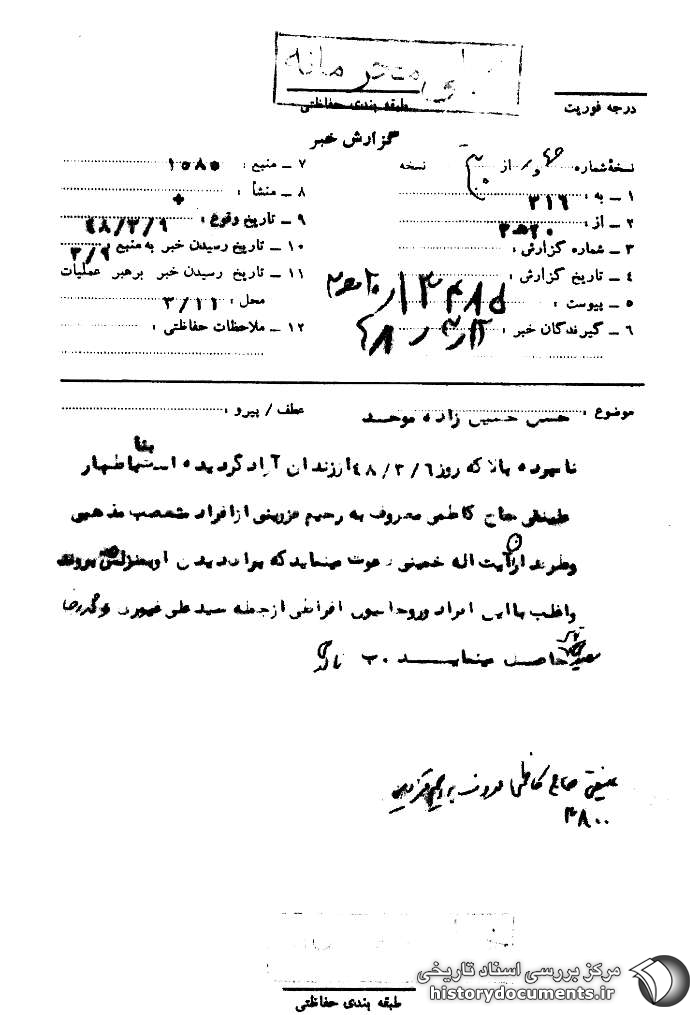 محرمانه
طبقه بندی حفاظتی
درجه فوریت
گزارش خبر
نسخهٔ شماره از نسخه
۱ ـ به : ۳۱۶
۲ ـ از :
۳ ـ شماره گزارش :
۴ ـ تاریخ گزارش :
۵ ـ پیوست :
۶ ـ گیرندگان خبر :
۷ ـ منبع : ۱۰۸۵
۸ ـ منشأ :
۹ ـ تاریخ وقوع : ۴۸/۳/۹
۱۰ ـ تاریخ رسیدن خبر به منبع : ۳/۹
۱۱ ـ تاریخ رسیدن خبر برهبر عملیات
محل : ۳/۱۱
۱۲ ـ ملاحظات حفاظتی :
موضوع : حسن حسین زاده موحد
عطف / پیرو :
نامبرده بالا که روز ۴۸/۳/۶ از زندان آزاد گردیده است بنا باظهار
حاج کاظمی معروف به رحیم قزوینی از افراد متعصب مذهبی
و طرفدار آیت اله خمینی دعوت مینماید که برای دیدن او بمنزلش بروند
و اغلب با این افراد و روحانیون افراطی از جمله سید علی غیوری و محمدرضا
مینماید
حاج کاظمی معروف به رحیم قزوینی
۴۸۰۰
طبقه بندی حفاظتی
مرکز بررسی اسناد تاریخی
historydocuments.ir